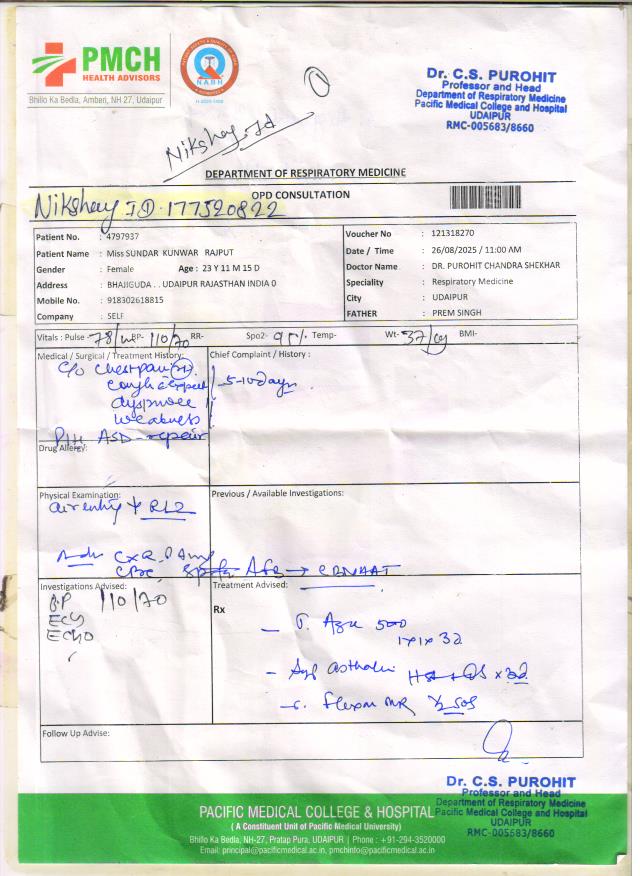 PMCH
HEALTH ADVISORS
Bhillo Ka Bedla, Amberi, NH 27, Udaipur
NABH
Dr. C.S. PUROHIT
Professor and Head
Department of Respiratory Medicine
Pacific Medical College and Hospital
UDAIPUR
RMC-005683/8660
1
Nikshay Id
DEPARTMENT OF RESPIRATORY MEDICINE
OPD CONSULTATION
Nikshay ID-177520822
Patient No. : 4797937
Patient Name : Miss SUNDAR KUNWAR RAJPUT
Gender : Female Age : 23 Y 11 M 15 D
Address : BHAJIGUDA . . UDAIPUR RAJASTHAN INDIA 0
Mobile No. : 918302618815
Company : SELF
Voucher No : 121318270
Date / Time : 26/08/2025 / 11:00 AM
Doctor Name : DR. PUROHIT CHANDRA SHEKHAR
Speciality : Respiratory Medicine
City : UDAIPUR
FATHER : PREM SINGH
Vitals : Pulse - 78/ BP- 110/70 RR- Spo2- Temp- Wt- 37/kg BMI-
Medical / Surgical / Treatment History:
C/o Chestpain
cough
weakness
P/H ASD repair
Drug Allergy:
Chief Complaint / History :
5-10 days
Physical Examination:
air entry
Previous / Available Investigations:
CXR
CBC, AFB → CBNAAT
Investigations Advised:
B.P 110/70
ECG
ECHO
Treatment Advised:
Rx
- T. 500
1x1x3d
- Syp x 3d
- MR ½ SOS
Follow Up Advise:
Dr. C.S. PUROHIT
Professor and Head
Department of Respiratory Medicine
Pacific Medical College and Hospital
UDAIPUR
RMC-005683/8660
PACIFIC MEDICAL COLLEGE & HOSPITAL
( A Constituent Unit of Pacific Medical University)
Bhillo Ka Bedla, NH-27, Pratap Pura, UDAIPUR | Phone : +91-294-3520000
Email: principal@pacificmedical.ac.in, pmchinfo@pacificmedical.ac.in